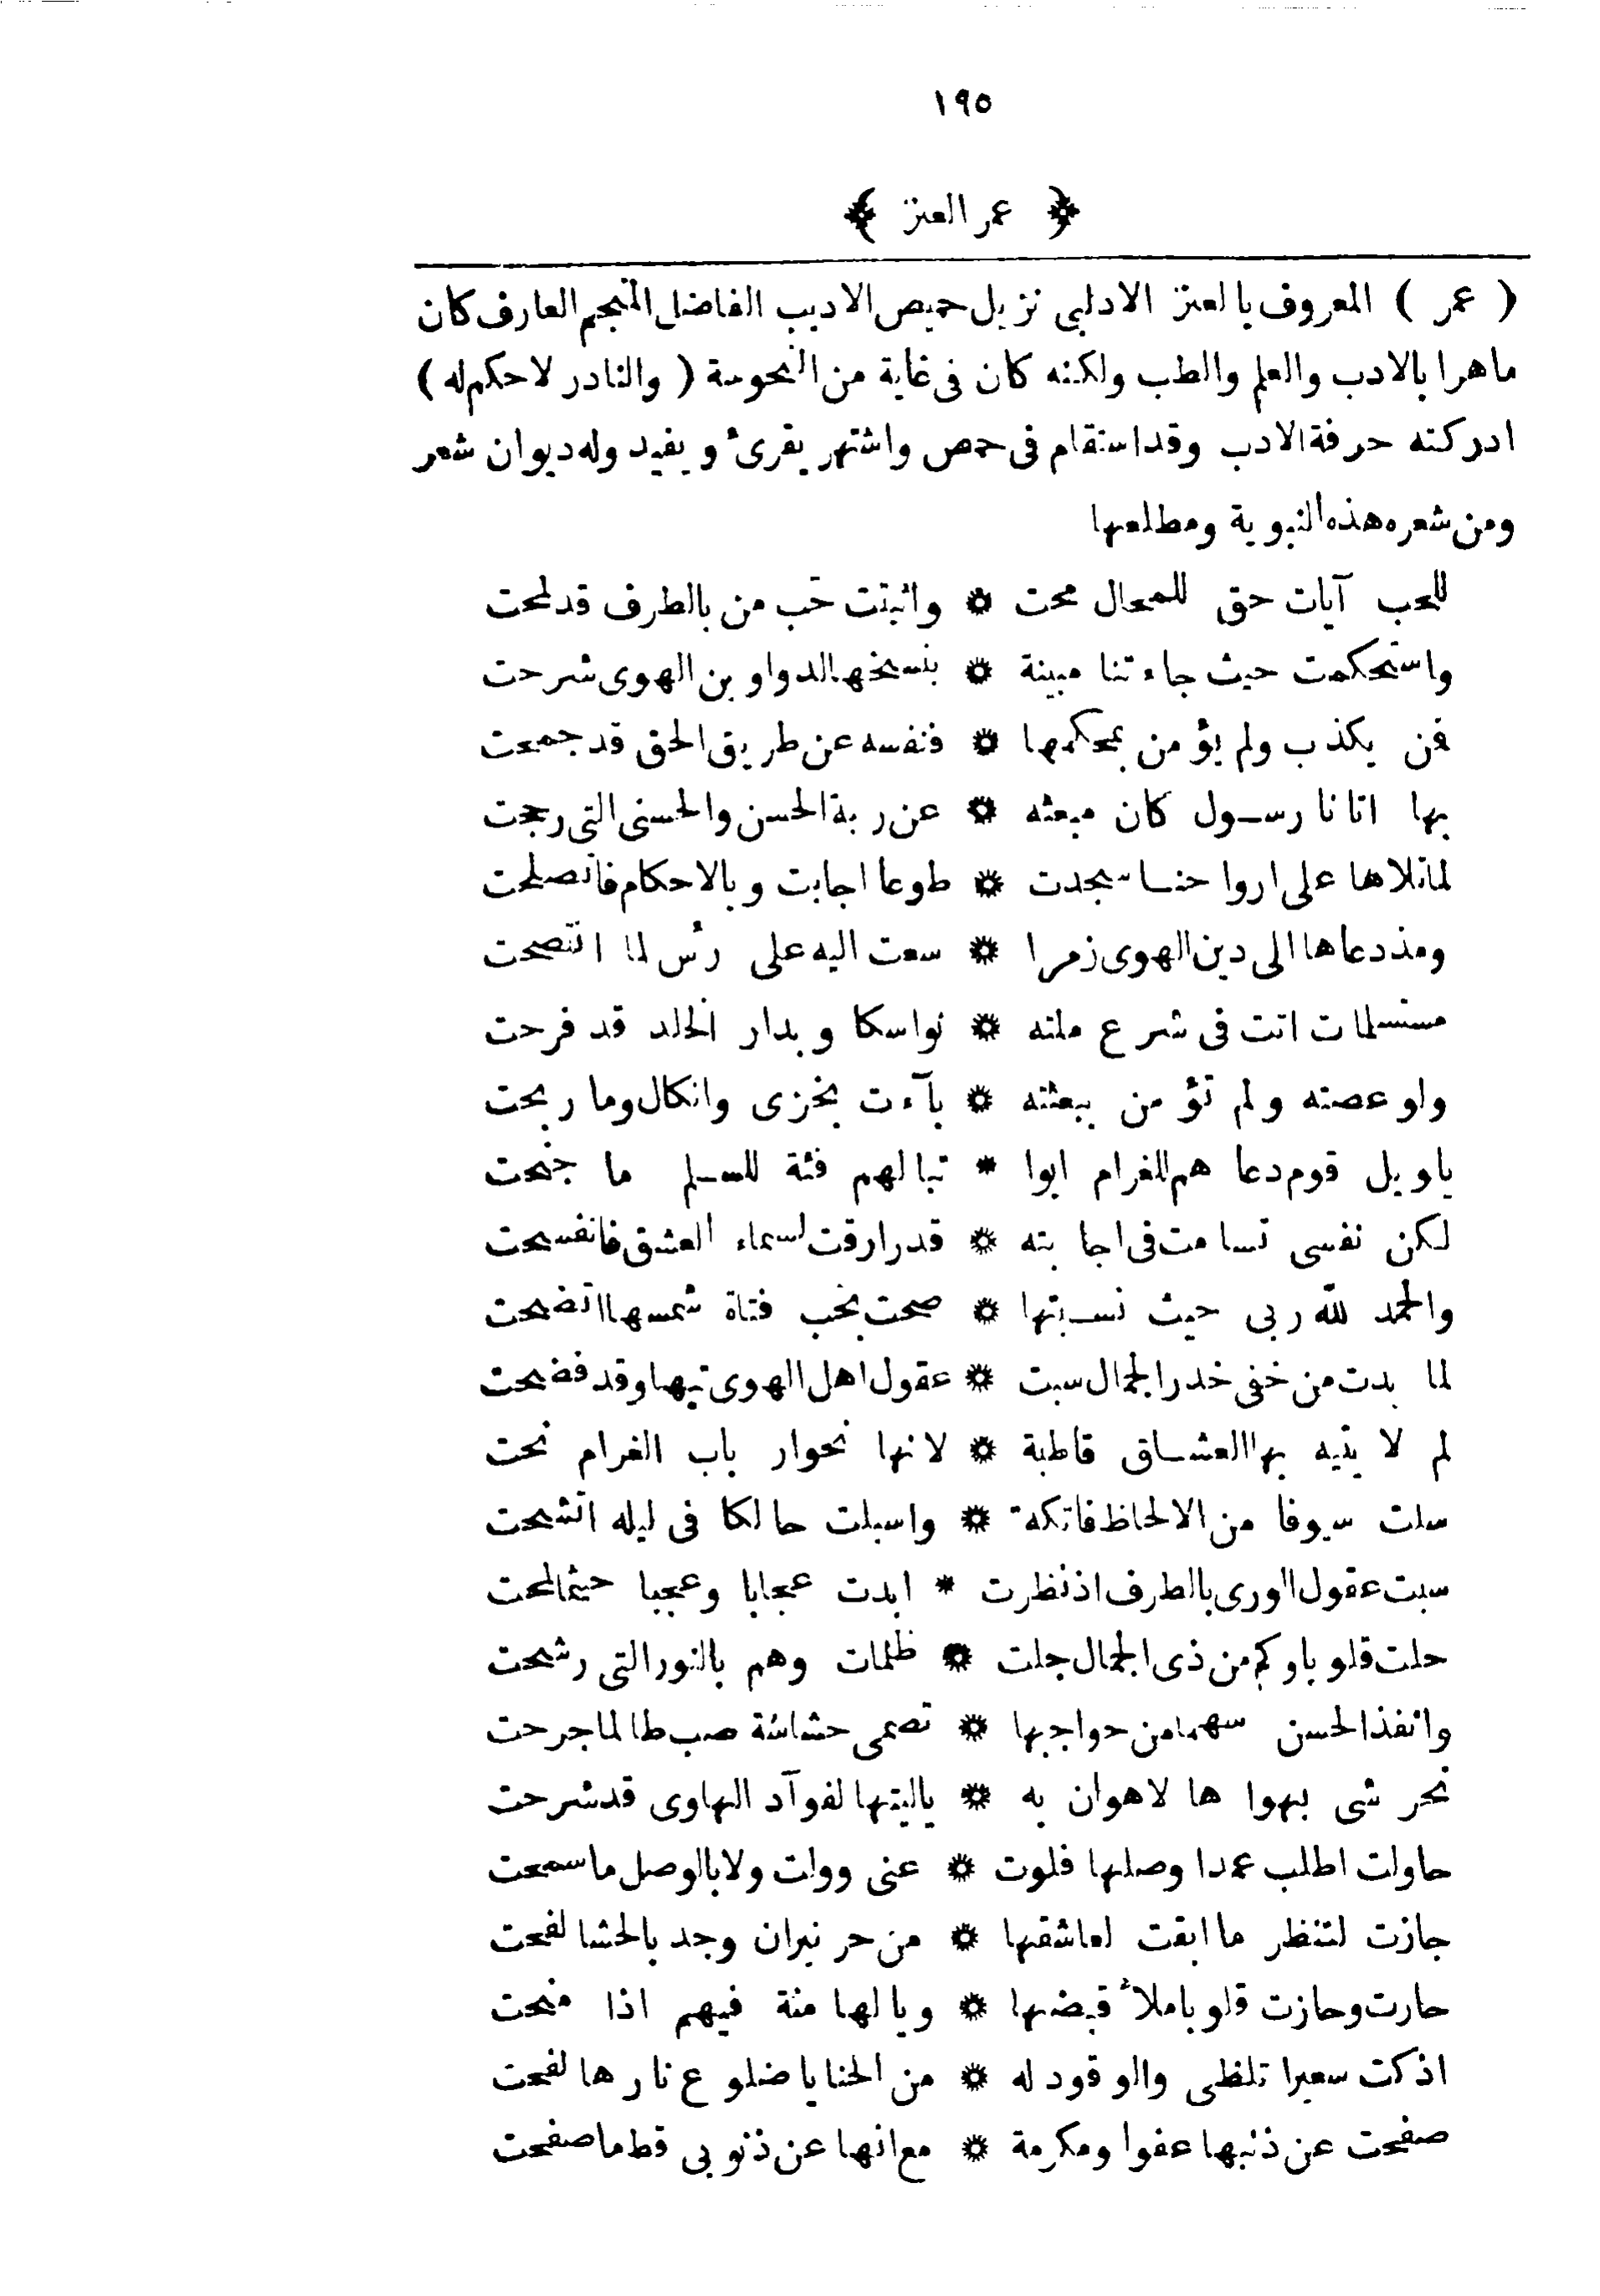 ١٩٥
﴿ عمر العنز ﴾
( عمر ) المعروف بالعنز الادلبي نزيل حميص الاديب الفاضل المنجم العارف كان
ماهرا بالادب والعلم والطب ولكنه كان فى غاية من النحوسة ( والنادر لاحكم له )
ادركته حرفة الادب وقد استقام فى حمص واشتهر يقرئ ويفيد وله ديوان شعر
ومن شعره هذه النبوية ومطلعها
للحب آيات حق للمحال محت * واثبتت حب من بالطرف قد لمحت
واستحكمت حيث جاءتنا مبينة * بنسخها الدواوين الهوى شرحت
فمن يكذب ولم يؤمن بمحكمها * فنفسه عن طريق الحق قد جمحت
بها اتانا رسول كان مبعثه * عن ربة الحسن والحسنى التى رجحت
لما تلاها على ارواحنا سجدت * طوعا اجابت وبالاحكام فانصلحت
ومذ دعاها الى دين الهوى زمرا * سعت اليه على رئس لما انتصحت
مستسلمات اتت فى شرع ملته * نواسكا وبدار الخلد قد فرحت
ولو عصته ولم تؤمن ببعثته * بآءت بخزى وانكال وما ربحت
ياويل قوم دعاهم للغرام ابوا * تبا لهم فئة للسلم ما جنحت
لكن نفسى تسامت فى اجابته * قدرا رقت لسماء العشق فانفسحت
والحمد لله ربى حيث نسبتها * صحت بحب فتاة شمسها اتضحت
لما بدت من خفى خدر الجمال سبت * عقول اهل الهوى تيها وقد فضحت
لم لا يتيه بها العشاق قاطبة * لانها نحوار باب الغرام نحت
سلت سيوفا من الالحاظ فاتكة * واسبلت حالكا فى ليله اتشحت
سبت عقول الورى بالطرف اذ نظرت * ابدت عجابا وعجبا حيثما لمحت
حلت قلوبا وكم من ذى الجمال جلت * ظلمات وهم بالنور التى رشحت
وانفذ الحسن سهما من حواجبها * تصمى حشاشة صب طالما جرحت
نحر شى بهواها لاهوان به * ياليتها لفوآد الهاوى قد شرحت
حاولت اطلب عمدا وصلها فلوت * عنى وولت ولا بالوصل ما سمحت
جازت لتنظر ما ابقت لعاشقها * من حر نيران وجد بالحشا لفحت
حارت وحازت قلوبا ملأ قبضها * ويالها منة فيهم اذا منحت
اذكت سعيرا تلظى والوقود له * من الحنايا ضلوع نارها لفحت
صفحت عن ذنبها عفوا ومكرمة * مع انها عن ذنوبى قط ما صفحت